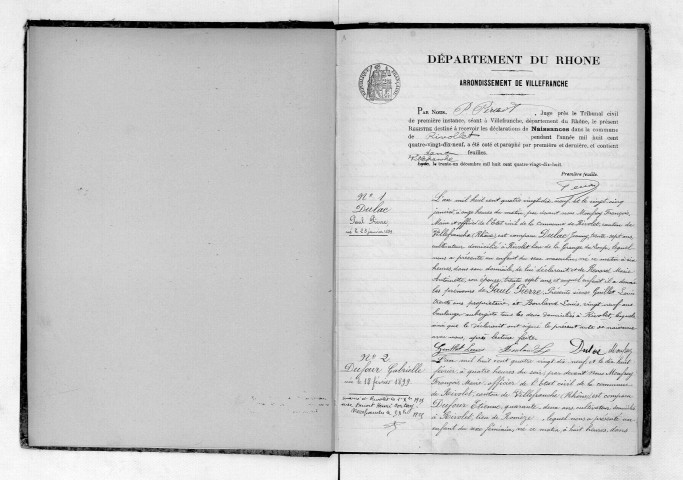 DÉPARTEMENT DU RHONE
ARRONDISSEMENT DE VILLEFRANCHE
PAR NOUS, Juge près le Tribunal civil
de première instance, séant à Villefranche, département du Rhône, le présent
REGISTRE destiné à recevoir les déclarations de Naissances dans la commune
de Rivolet pendant l'année mil huit cent
quatre-vingt-dix-neuf, a été coté et paraphé par première et dernière, et contient
feuilles.
le trente-un décembre mil huit cent quatre-vingt-dix-huit
Première feuille.
N° 1
Dulac
Paul Pierre
né le 25 janvier 1899
L'an mil huit cent quatre vingt dix neuf et le vingt cinq
janvier à onze heures du matin par devant nous Monfray François,
Maire et officier de l'état civil de la commune de Rivolet, canton de
Villefranche (Rhône), est comparu Dulac trente sept ans
cultivateur domicilié à Rivolet lieu de la Grange du Loup, lequel
nous a présenté un enfant du sexe masculin, né ce matin à dix
heures, dans son domicile, de lui déclarant et de Renard Marie
Antoinette, son épouse, trente sept ans et auquel enfant il a donné
les prénoms de Paul Pierre. Présents sieurs Guillot Louis
trente ans propriétaire et Boulard Louis, vingt neuf ans
boulanger aubergiste tous les deux domiciliés à Rivolet, lesquels
ainsi que le déclarant ont signé le présent acte de naissance
avec nous, après lecture faite
Guillot Louis Dulac Monfray
N° 2
Dufour Gabrielle
née le 18 février 1899
L'an mil huit cent quatre vingt dix neuf et le dix huit
février à quatre heures du soir, par devant nous Monfray
François Maire officier de l'état civil de la commune
de Rivolet, canton de Villefranche (Rhône), est comparu
Dufour Etienne quarante deux ans cultivateur, domicilié
à Rivolet, lieu de lequel nous a présenté un
enfant du sexe féminin, né ce matin, à huit heures, dans